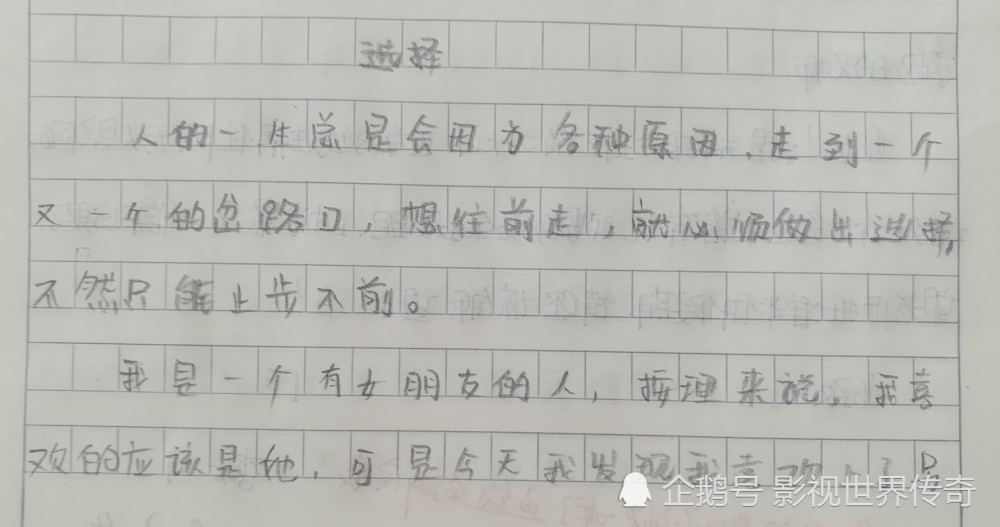 选择
人的一生总是会因为各种原因,走到一个
又一个的岔路口,想往前走,就必须做出选择,
不然只能止步不前。
我是一个有女朋友的人,按理来说,我喜
欢的应该是她,可是今天我发现我喜欢
企鹅号 影视世界传奇